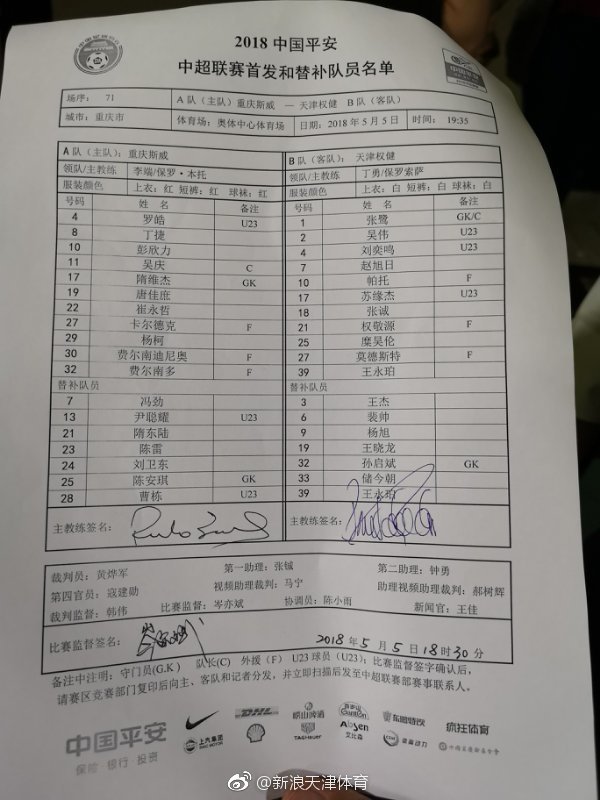 2018 中国平安
中超联赛首发和替补队员名单
场序： 71 A 队（主队）重庆斯威 — 天津权健 B 队（客队）
城市：重庆市 体育场：奥体中心体育场 日期：2018 年 5 月 5 日 时间： 19:35
A 队（主队）：重庆斯威 B 队（客队）： 天津权健
领队/主教练 李端/保罗·本托 领队/主教练 丁勇/保罗索萨
服装颜色 上衣：红 短裤：红 球袜：红 服装颜色 上衣：白 短裤：白 球袜：白
号码 姓 名 备注 号码 姓 名 备注
4 罗皓 U23 1 张鹭 GK/C
8 丁捷 2 吴伟 U23
10 彭欣力 4 刘奕鸣 U23
11 吴庆 C 7 赵旭日
17 隋维杰 GK 10 帕托 F
19 唐佳庶 17 苏缘杰 U23
22 崔永哲 18 张诚
27 卡尔德克 F 21 权敬源 F
29 杨柯 25 糜昊伦
30 费尔南迪尼奥 F 27 莫德斯特 F
32 费尔南多 F 39 王永珀
替补队员 替补队员
7 冯劲 3 王杰
13 尹聪耀 U23 6 裴帅
21 隋东陆 9 杨旭
23 陈雷 19 王晓龙
24 刘卫东 32 孙启斌 GK
25 陈安琪 GK 33 储今朝
28 曹栋 U23 39 王永珀
主教练签名： 主教练签名：
裁判员：黄烨军 第一助理：张铖 第二助理：钟勇
第四官员：寇建勋 视频助理裁判：马宁 助理视频助理裁判：郝树辉
裁判监督：韩伟 比赛监督：岑亦斌 协调员：陈小雨 新闻官：王佳
比赛监督签名： 2018 年 5 月 5 日 18 时 30 分
备注中注明：守门员(G.K) 队长(C) 外援（F） U23 球员（U23）；比赛监督签字确认后，
请赛区竞赛部门复印后向主、客队和记者分发，并立即扫描后发至中超联赛部赛事联系人。
中国平安
保险·银行·投资
DHL
崂山啤酒
东鹏特饮
疯狂体育
上汽集团
SAIC MOTOR
TAGHeuer
Absen
艾比森
@新浪天津体育